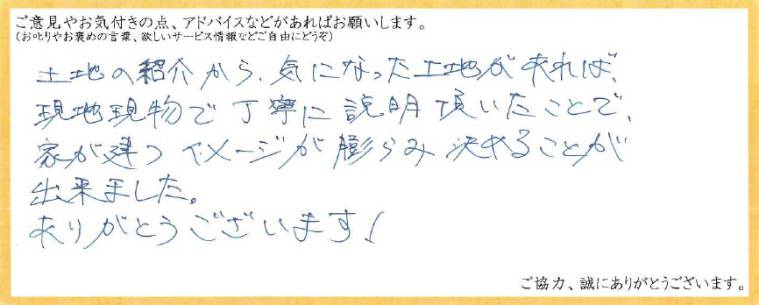 ご意見やお気付きの点、アドバイスなどがあればお願いします。
(お叱りやお褒めの言葉、欲しいサービス情報などご自由にどうぞ)
土地の紹介から、気になった土地が来れば、
現地現物で丁寧に説明頂いたことで、
家が建つイメージが膨らみ決めることが
出来ました。
ありがとうございます!
ご協力、誠にありがとうございます。